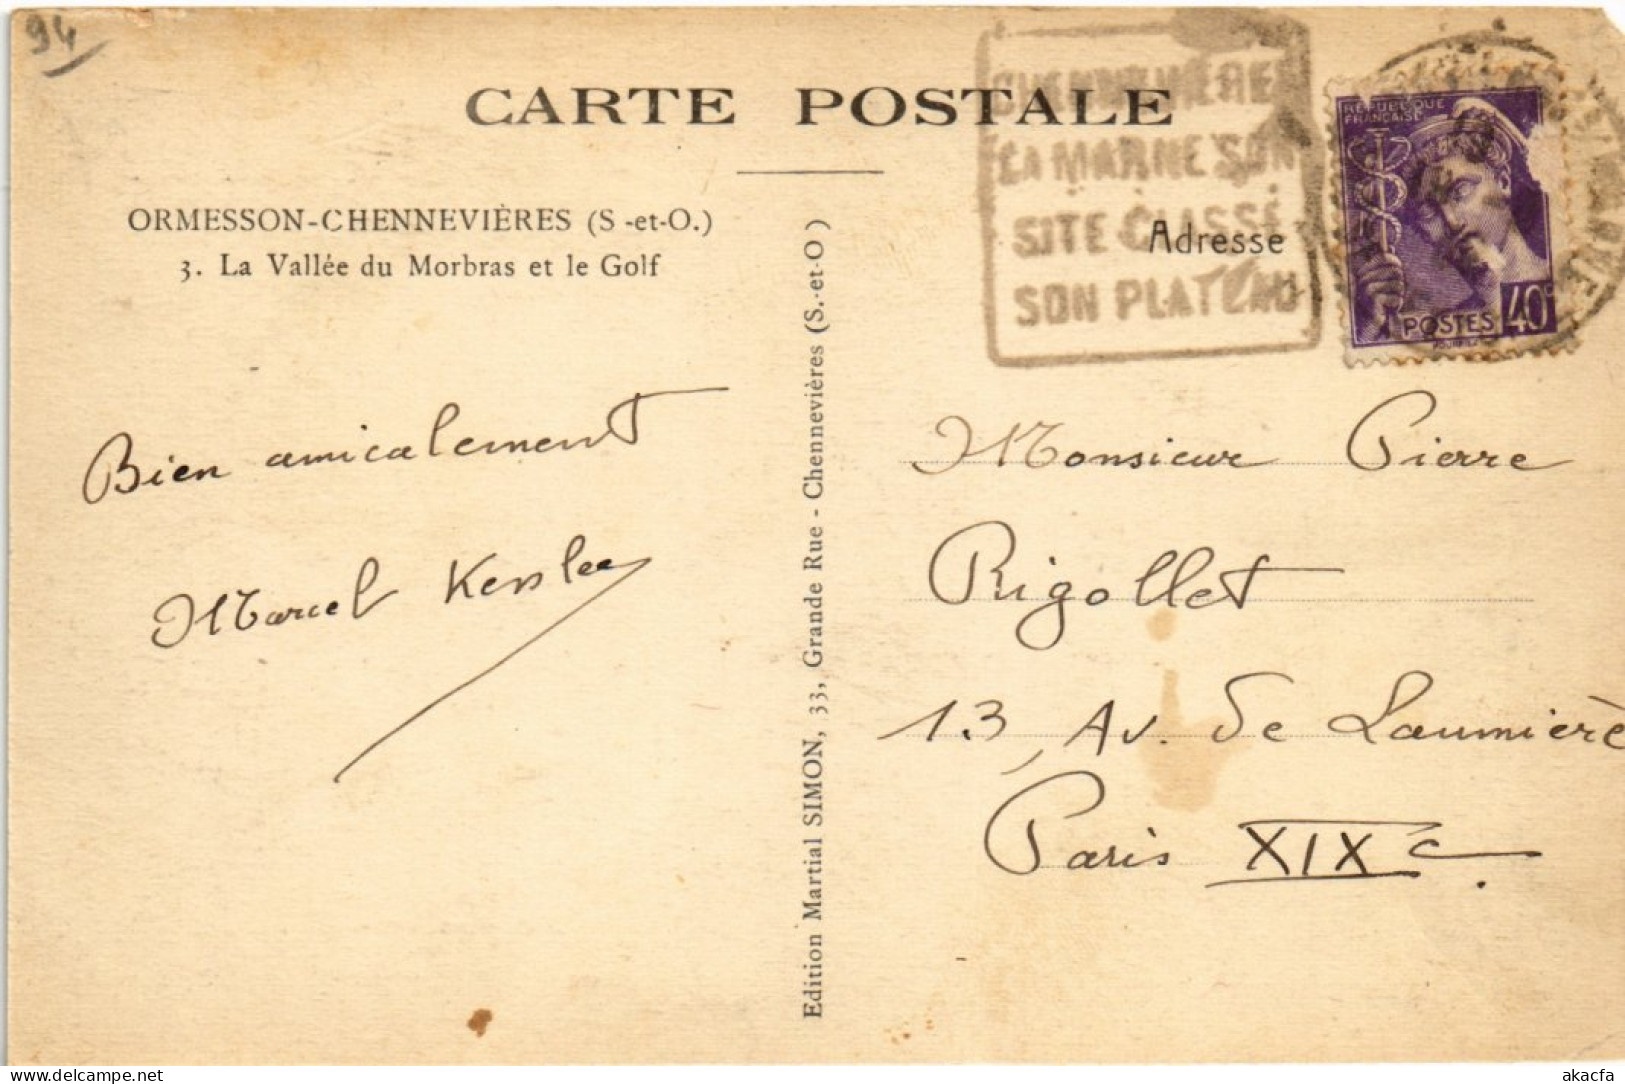 94
CARTE POSTALE
ORMESSON-CHENNEVIÈRES (S-et-O.)
3. La Vallée du Morbras et le Golf
Bien amicalement
Marcel Kessler
Edition Martial SIMON, 33, Grande Rue - Chennevières (S.-et-O)
CHENNEVIÈRE
LA MARNE SON
SITE CLASSÉ
SON PLATEAU
Adresse
RÉPUBLIQUE
FRANÇAISE
POSTES 40c
Monsieur Pierre
Rigollet
13, Av. de Laumière
Paris XIXe.
delcampe.net
akacfa